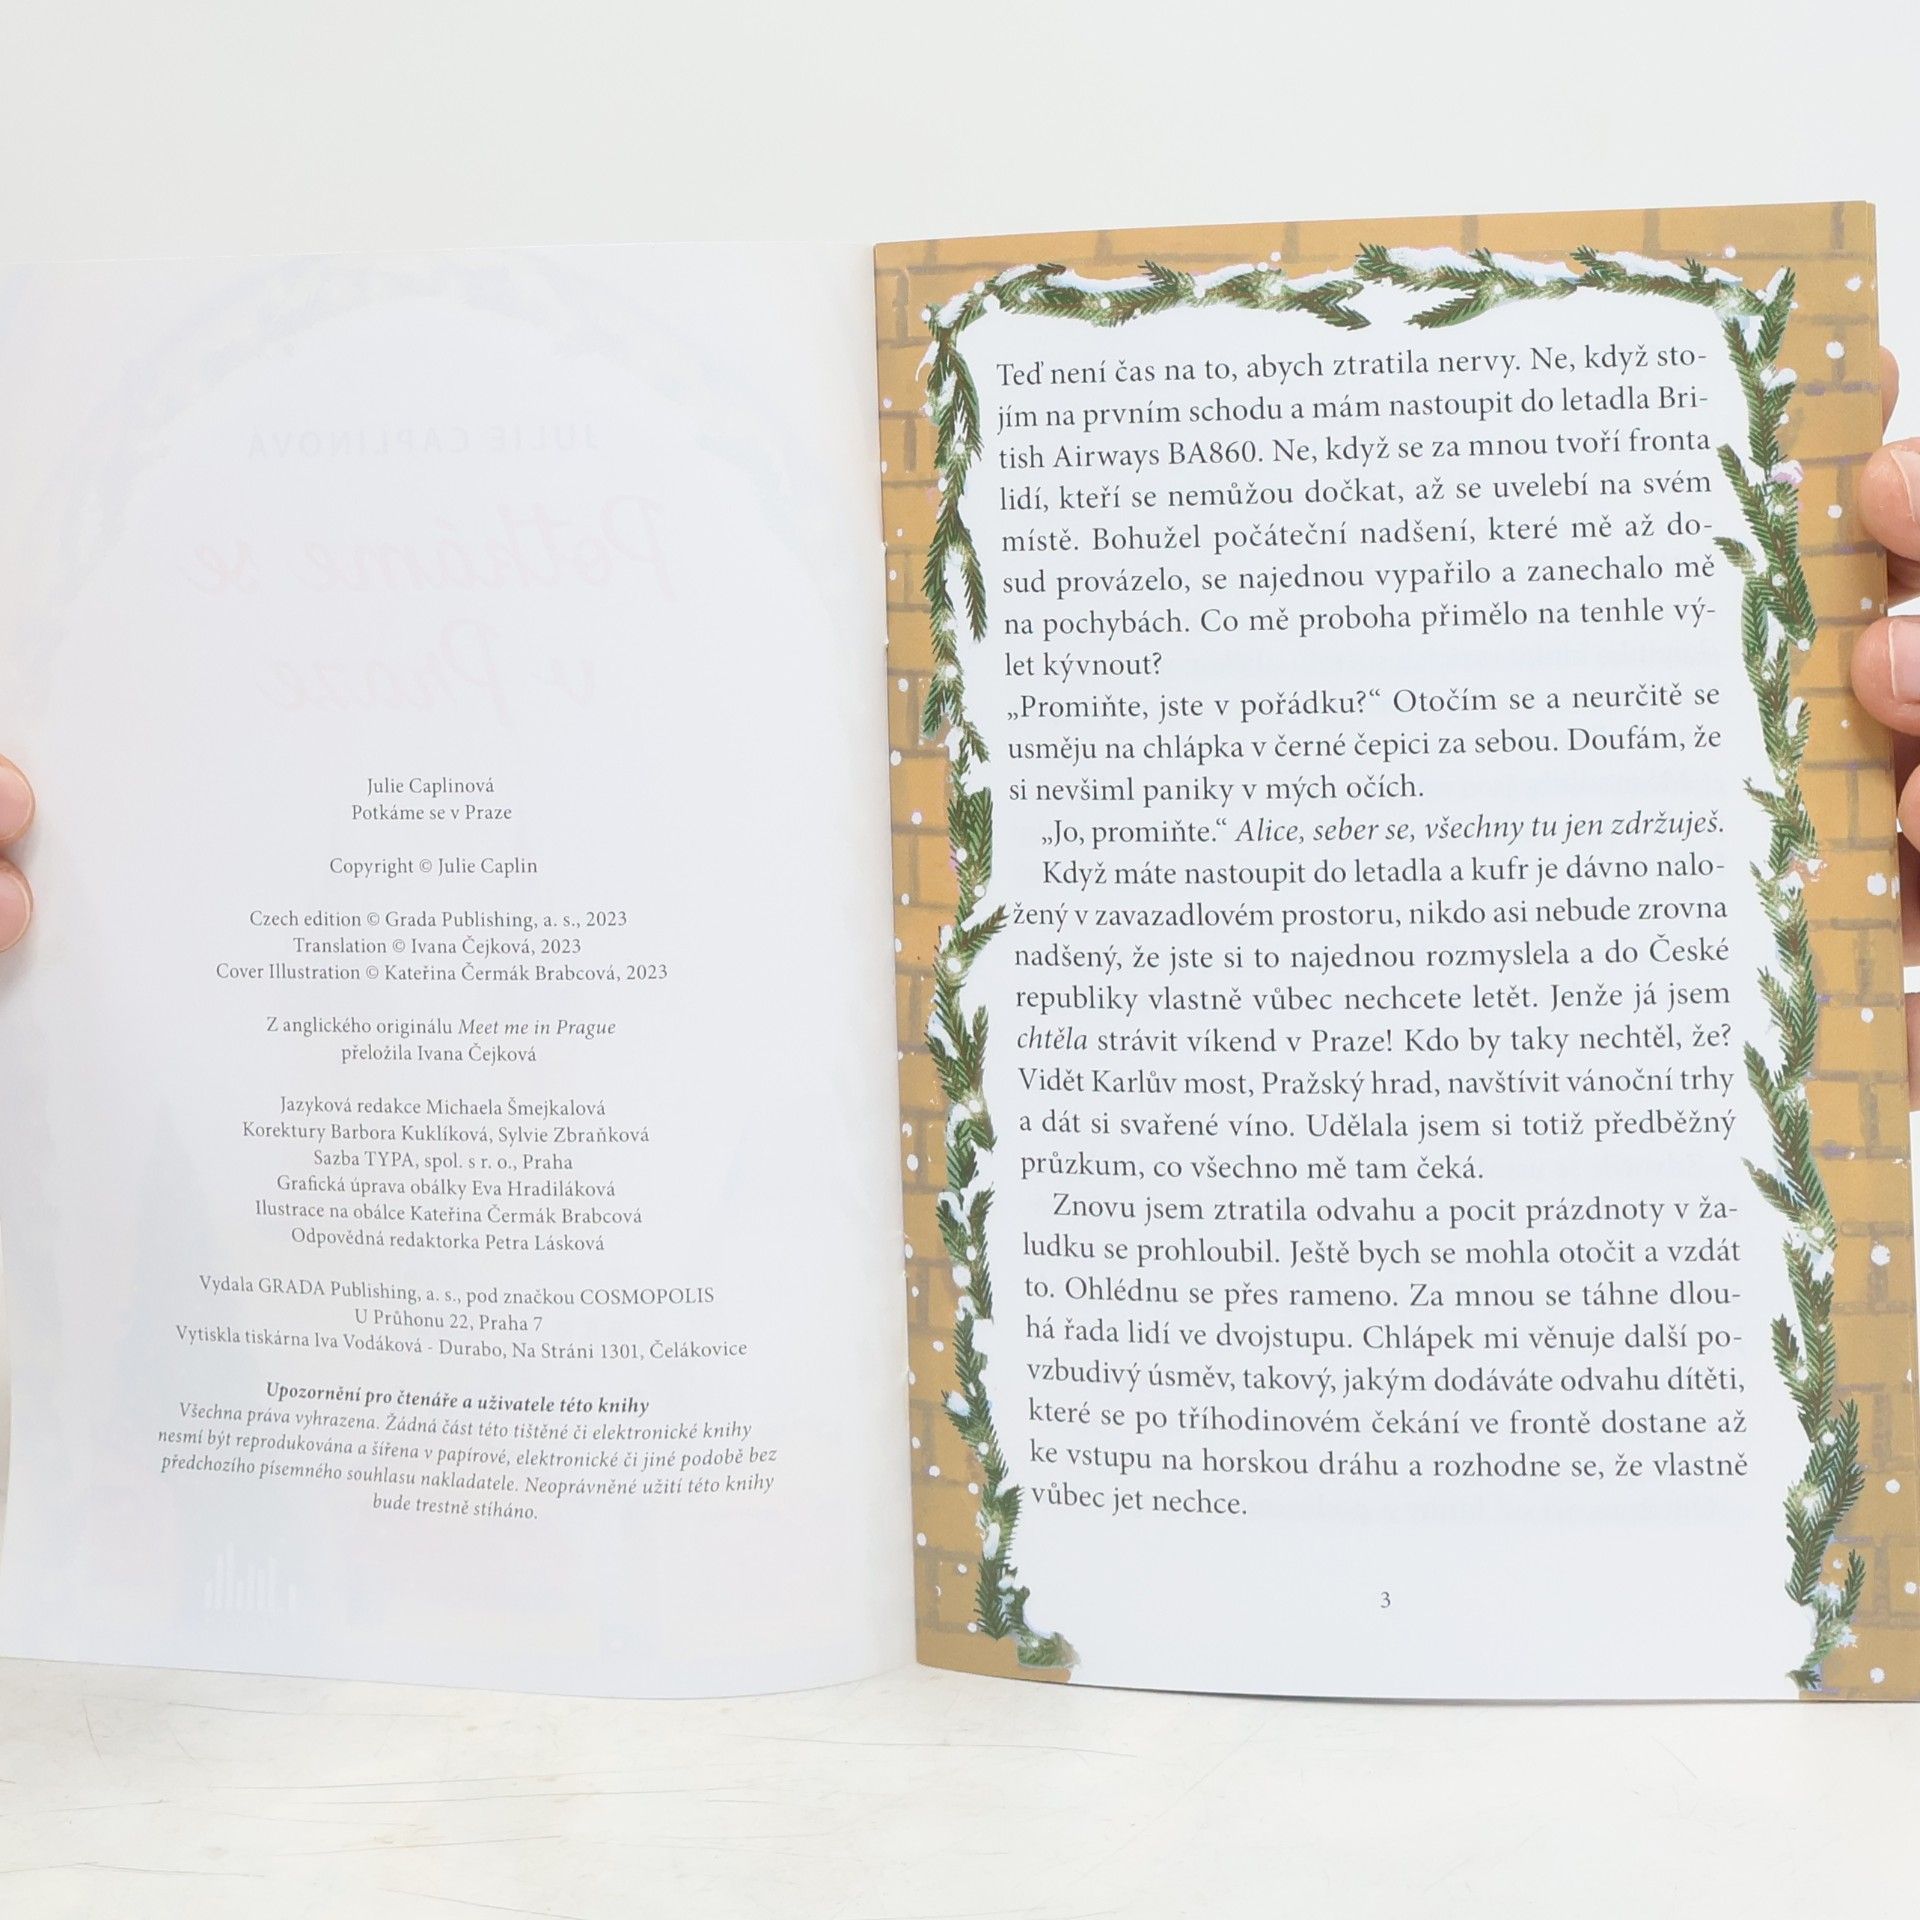 Julie Caplinová
Potkáme se v Praze
Copyright © Julie Caplin
Czech edition © Grada Publishing, a. s., 2023
Translation © Ivana Čejková, 2023
Cover Illustration © Kateřina Čermák Brabcová, 2023
Z anglického originálu Meet me in Prague
přeložila Ivana Čejková
Jazyková redakce Michaela Šmejkalová
Korektury Barbora Kuklíková, Sylvie Zbraňková
Sazba TYPA, spol. s r. o., Praha
Grafická úprava obálky Eva Hradiláková
Ilustrace na obálce Kateřina Čermák Brabcová
Odpovědná redaktorka Petra Lásková
Vydala GRADA Publishing, a. s., pod značkou COSMOPOLIS
U Průhonu 22, Praha 7
Vytiskla tiskárna Iva Vodáková - Durabo, Na Stráni 1301, Čelákovice
Upozornění pro čtenáře a uživatele této knihy
Všechna práva vyhrazena. Žádná část této tištěné či elektronické knihy
nesmí být reprodukována a šířena v papírové, elektronické či jiné podobě bez
předchozího písemného souhlasu nakladatele. Neoprávněné užití této knihy
bude trestně stíháno.
Teď není čas na to, abych ztratila nervy. Ne, když sto-
jím na prvním schodu a mám nastoupit do letadla Bri-
tish Airways BA860. Ne, když se za mnou tvoří fronta
lidí, kteří se nemůžou dočkat, až se uvelebí na svém
místě. Bohužel počáteční nadšení, které mě až do-
sud provázelo, se najednou vypařilo a zanechalo mě
na pochybách. Co mě proboha přimělo na tenhle vý-
let kývnout?
„Promiňte, jste v pořádku?“ Otočím se a neurčitě se
usměju na chlápka v černé čepici za sebou. Doufám, že
si nevšiml paniky v mých očích.
„Jo, promiňte.“ Alice, seber se, všechny tu jen zdržuješ.
Když máte nastoupit do letadla a kufr je dávno nalo-
žený v zavazadlovém prostoru, nikdo asi nebude zrovna
nadšený, že jste si to najednou rozmyslela a do České
republiky vlastně vůbec nechcete letět. Jenže já jsem
chtěla strávit víkend v Praze! Kdo by taky nechtěl, že?
Vidět Karlův most, Pražský hrad, navštívit vánoční trhy
a dát si svařené víno. Udělala jsem si totiž předběžný
průzkum, co všechno mě tam čeká.
Znovu jsem ztratila odvahu a pocit prázdnoty v ža-
ludku se prohloubil. Ještě bych se mohla otočit a vzdát
to. Ohlédnu se přes rameno. Za mnou se táhne dlou-
há řada lidí ve dvojstupu. Chlápek mi věnuje další po-
vzbudivý úsměv, takový, jakým dodáváte odvahu dítěti,
které se po tříhodinovém čekání ve frontě dostane až
ke vstupu na horskou dráhu a rozhodne se, že vlastně
vůbec jet nechce.
3